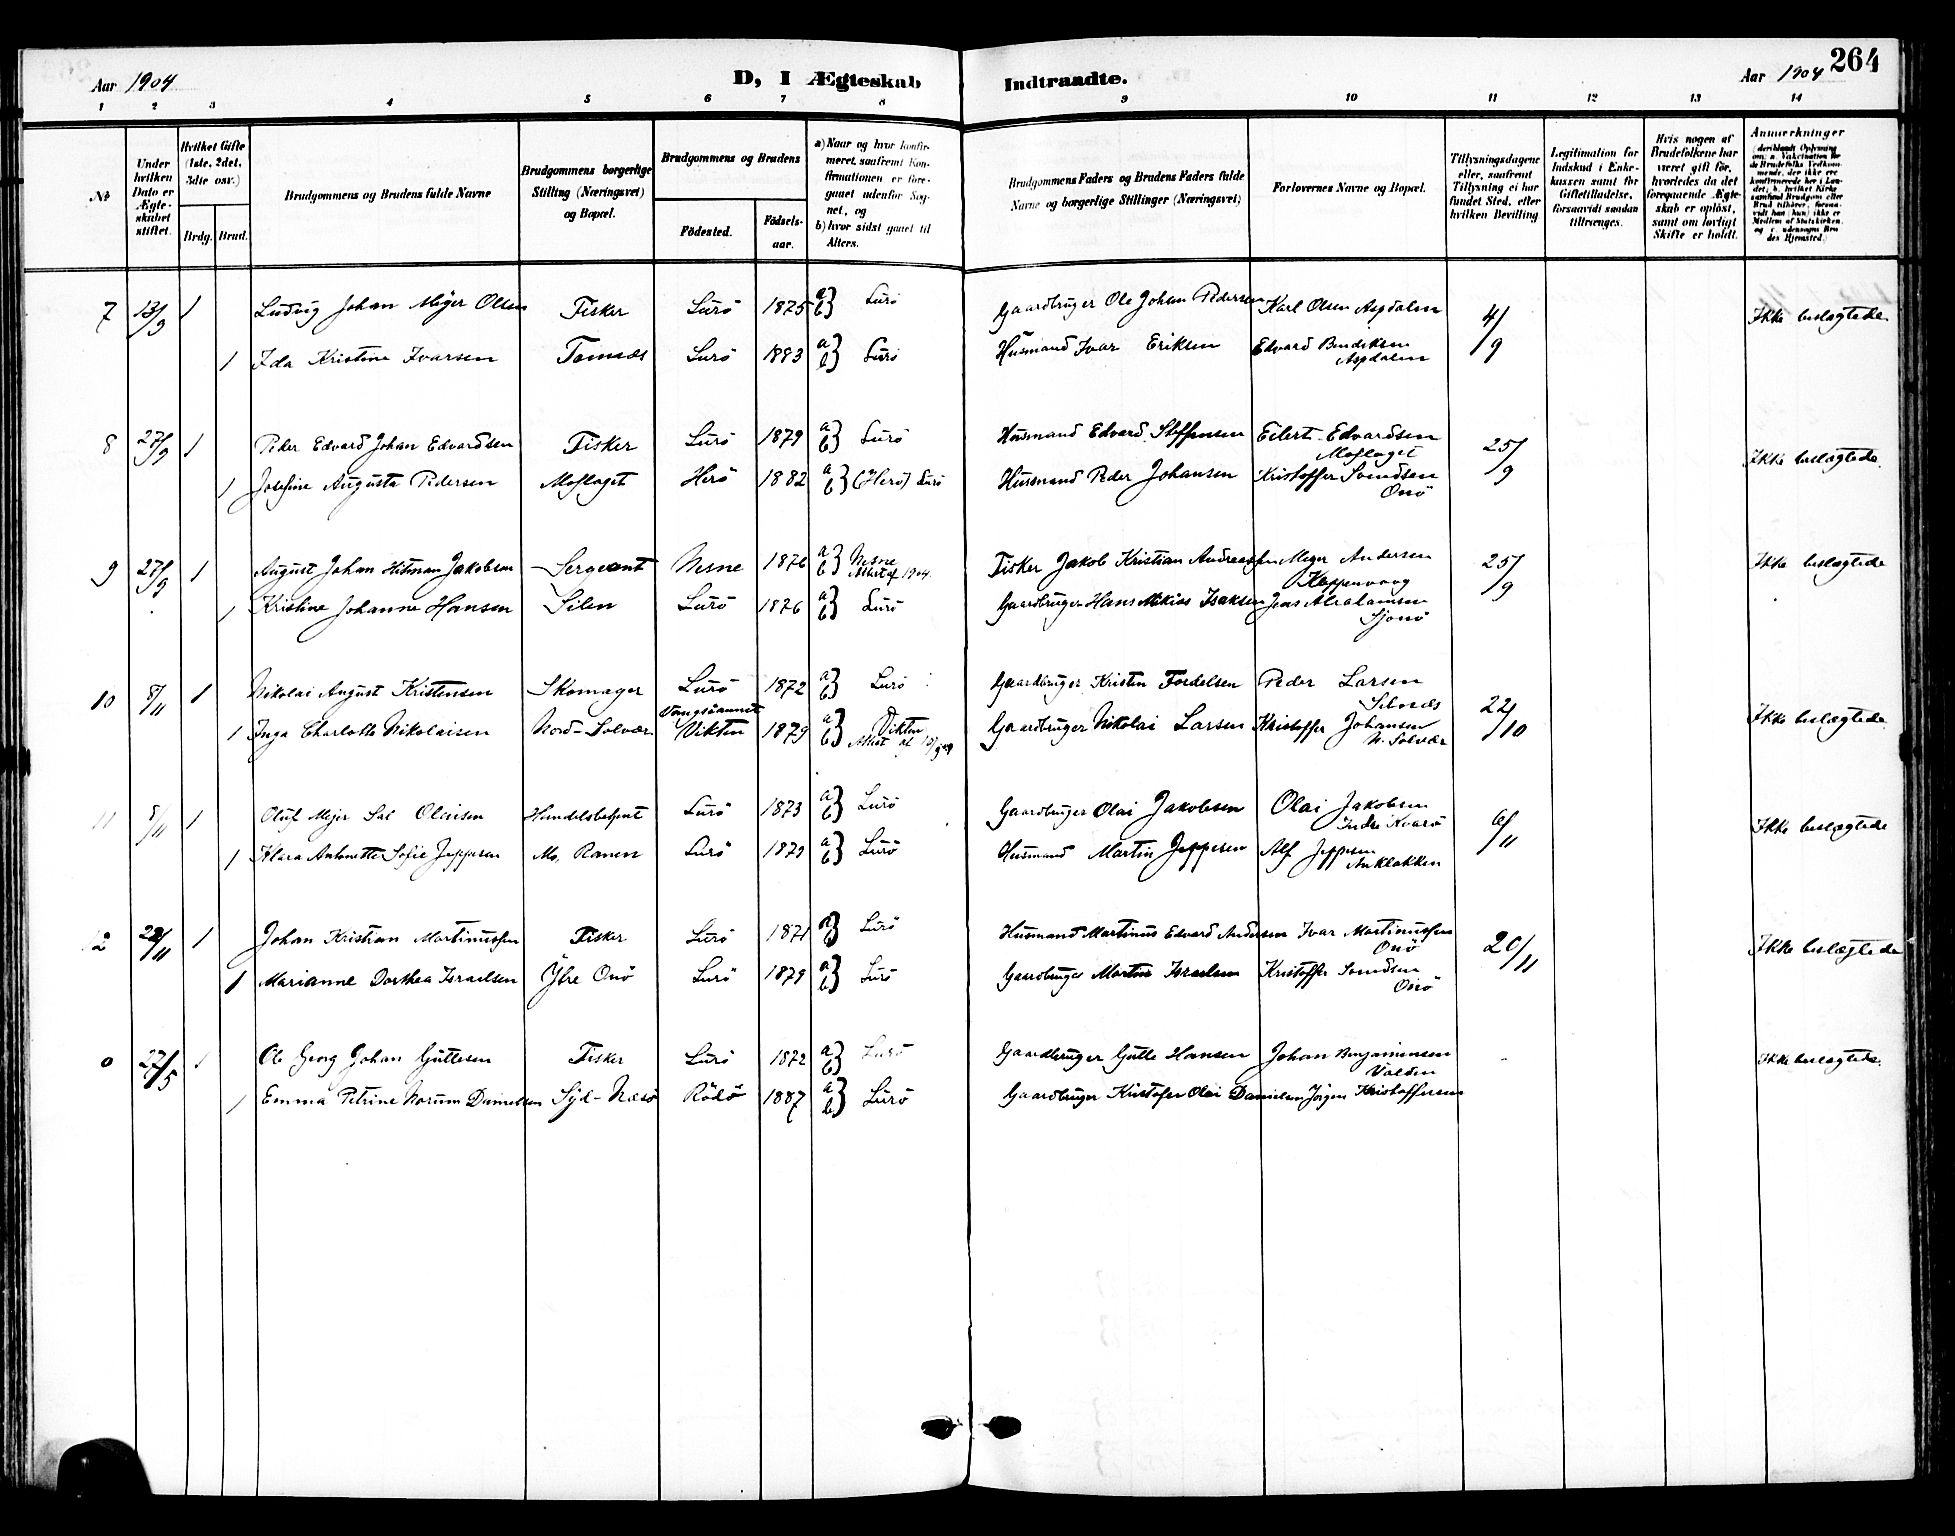 264
Aar 1904
D, I Ægteskab Indtraadte.
Aar 1904
1 2 3 4 5 6 7 8 9 10 11 12 13 14
No
Under hvilken Dato er Ægteskabet stiftet.
Hvilket Gifte (1ste, 2det, 3die osv.)
Brdg. Brud.
Brudgommens og Brudens fulde Navne
Brudgommens borgerlige Stilling (Næringsvei) og Bopæl.
Brudgommens og Brudens
Fødested.
Fødselsaar.
a) Naar og hvor konfirmeret, saafremt Konfirmationen er foregaaet udenfor Sognet, og
b) hvor sidst gaaet til Alters.
Brudgommens Faders og Brudens Faders fulde Navne og borgerlige Stillinger (Næringsvei)
Forlovernes Navne og Bopæl.
Tillysningsdagene eller, saafremt Tillysning ei har fundet Sted, efter hvilken Bevilling
Legitimation for Indskud i Enkekassen samt for Giftetilladelse, forsaavidt saadan tiltrænges.
Hvis nogen af Brudefolkene har været gift før, hvorledes da det foregaaende Ægteskab er opløst, samt om lovligt Skifte er holdt.
Anmerkninger
7 13/9 1 Ludvig Johan Mejer Olsen Fisker Lurö 1875 a b} Lurö Gaardbruger Ole Johan Pedersen Karl Olsen Aspdalen 4/9 Ikke beslægtede
1 Ida Kristine Ivarsen Tomæs Lurö 1883 a b} Lurö Husmand Ivar Eriksen Edvard Bendiksen
Aspdalen
8 27/9 1 Peder Edvard Johan Edvardsen Fisker Lurö 1879 a b} Lurö Husmand Edvard Steffensen Eilert Edvardsen 25/9 Ikke beslægtede.
Moflaget
1 Josefine Augusta Pedersen Moflaget Herö 1882 a b} (Herö) Lurö Husmand Peder Johansen Kristoffer Svendsen
Onö
9 27/9 1 August Johan Hitman Jakobsen Sergeant Nesne 1876 a b} Nesne Fisker Jakob Kristian Andreassen Meyer Andersen 25/9 Ikke beslægtede
Attest af 1904.
1 Kristine Johanne Hansen Silen Lurö 1876 a b} Lurö Gaardbruger Hans Mikias Isaksen Jens Abrahamsen
Sjonö
10 8/11 1 Nikolai August Kristensen Skomager Lurö 1872 a b} Lurö Gaardbruger Kristen Fordelsen Peder Larsen 22/10 Ikke beslægtede
Silvæs
1 Inga Charlotte Nikolaisen Nord-Solvær Vikten 1879 a b} Vikten Gaardbruger Nikolai Larsen Kristoffer Johansen
N. Solvær
11 8/11 1 Oluf Mejer Sal Olaisen Handelsbetjent Lurö 1873 a b} Lurö Gaardbruger Olai Jakobsen Olai Jakobsen 6/11 Ikke beslægtede
Indre Kvarö
1 Klara Antonette Sofie Jeppesen Mo, Ranen Lurö 1879 a b} Lurö Husmand Martin Jeppesen Alf Jeppesen
Anklakken
12 22/11 1 Johan Kristian Martinussen Fisker Lurö 1871 a b} Lurö Husmand Martinus Edvard Andersen Ivar Martinussen 20/11 Ikke beslægtede
Onö
1 Marianne Dorthea Israelsen Ytre Onö Lurö 1879 a b} Lurö Gaardbruger Martin Israelsen Kristoffer Svendsen
Onö
0 27/5 1 Ole Georg Johan Guttesen Fisker Lurö 1872 a b} Lurö Gaardbruger Gutte Hansen Johan Benjaminsen Ikke beslægtede.
Valden
1 Emma Petrine Norum Danielsen Syd-Næsö Rödö 1887 a b} Lurö Gaardbruger Kristofer Olai Danielsen Jörgen Kristoffersen